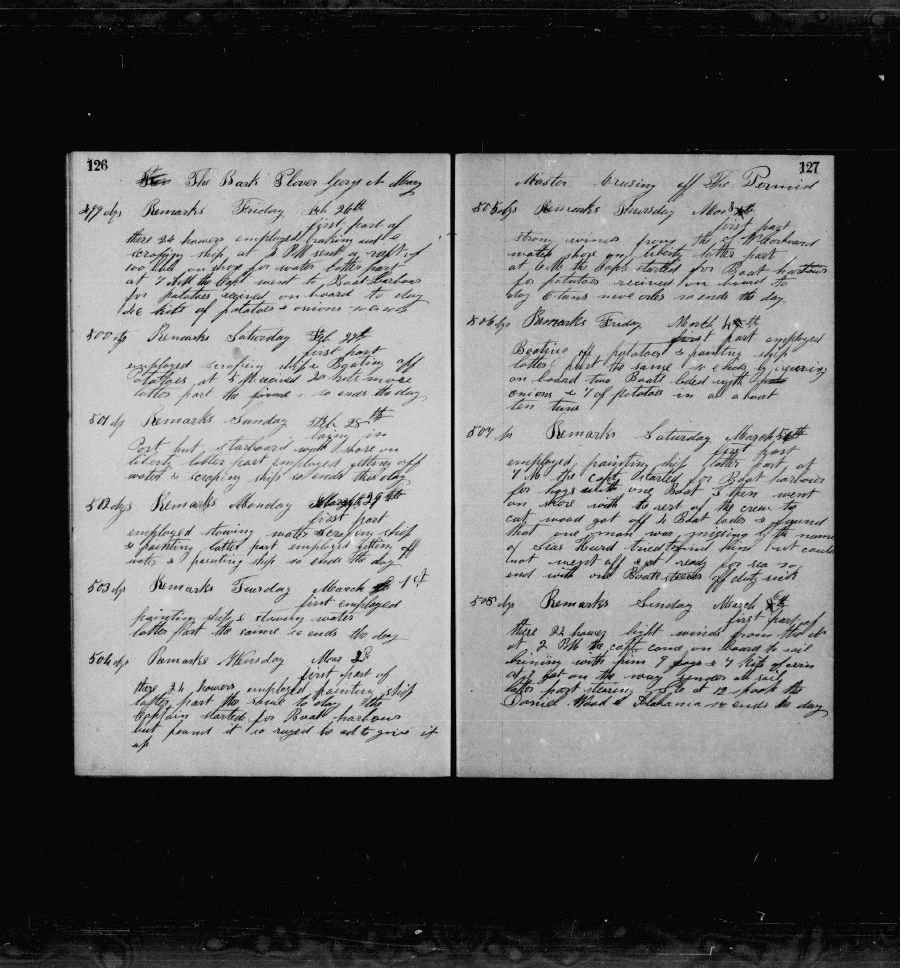 126
The Bark Plover
499 dys Remarks Friday Feb 26th
first part of
these 24 howers employed
scraping ship at 2 PM sent a raft of
100 bbls on shore for water latter part
at 7 AM the Capt went to Boat Harbour
for potatoes received on board to day
46 kits of potatoes & onions so ends
500 dys Remarks Saturday Feb 27th
first part
employed scraping ship & Boating off
potatoes at 5 PM received 20 kits more
latter part the same so ends the day
501 dys Remarks Sunday Feb 28th
laying in
Port but starboard watch shore on
liberty latter part employed getting off
water & scraping ship so ends this day
502 dys Remarks Monday 29th
first part
employed stowing water scraping ship
& painting latter part employed getting off
water & painting ship so ends the day
503 dys Remarks Tuesday March 1st
first employed
painting ship & stowing water
latter part the same so ends the day
504 dys Remarks Wensday Mar 2d
first part of
these 24 howers employed painting ship
latter part the same to day the
Captain started for Boat harbour
but found it so ruged he ad to give it
up
127
Master Crusing off The
505 dys Remarks Thursday Mar
first part
strong winds from the
watch shore on liberty latter part
at 6 AM the Capt started for Boat harbour
for potatoes recived on board to
day so ends the day
506 dys Remarks Friday March 4th
first part employed
Boating off potatoes & painting ship
latter part the same so ends by receiving
on board two Boats loded with
onions & 7 of potatoes in all about
ten tuns
507 dys Remarks Saturday March 5th
first part
employed painting ship latter part at
7 M the Capt started for Boat harbour
for hogs with one Boat & then went
on shore with the rest of the crew to
cut wood got off 4 Boat lodes & found
that one man was missing by the name
of Heard tried to find him but could
not went off got ready for sea so
end with one Boatsteerer off duty sick
508 dys Remarks Sunday March 6th
first part of
these 24 howers light winds from
at 2 PM the capt come on board to sail
brining with him 9 hogs & 7 kits of
got on the way under all sail
latter part stearing at 12 spook the
Daniel Wood & Alabama so ends the day